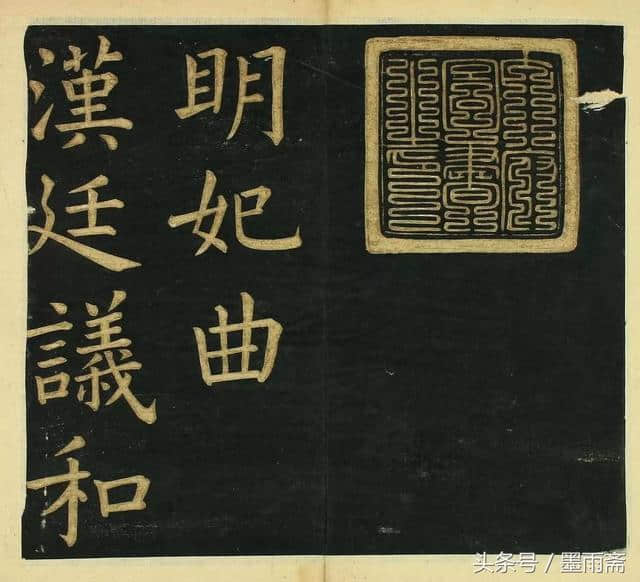 明妃曲
漢廷議和
头条号 / 墨雨斋